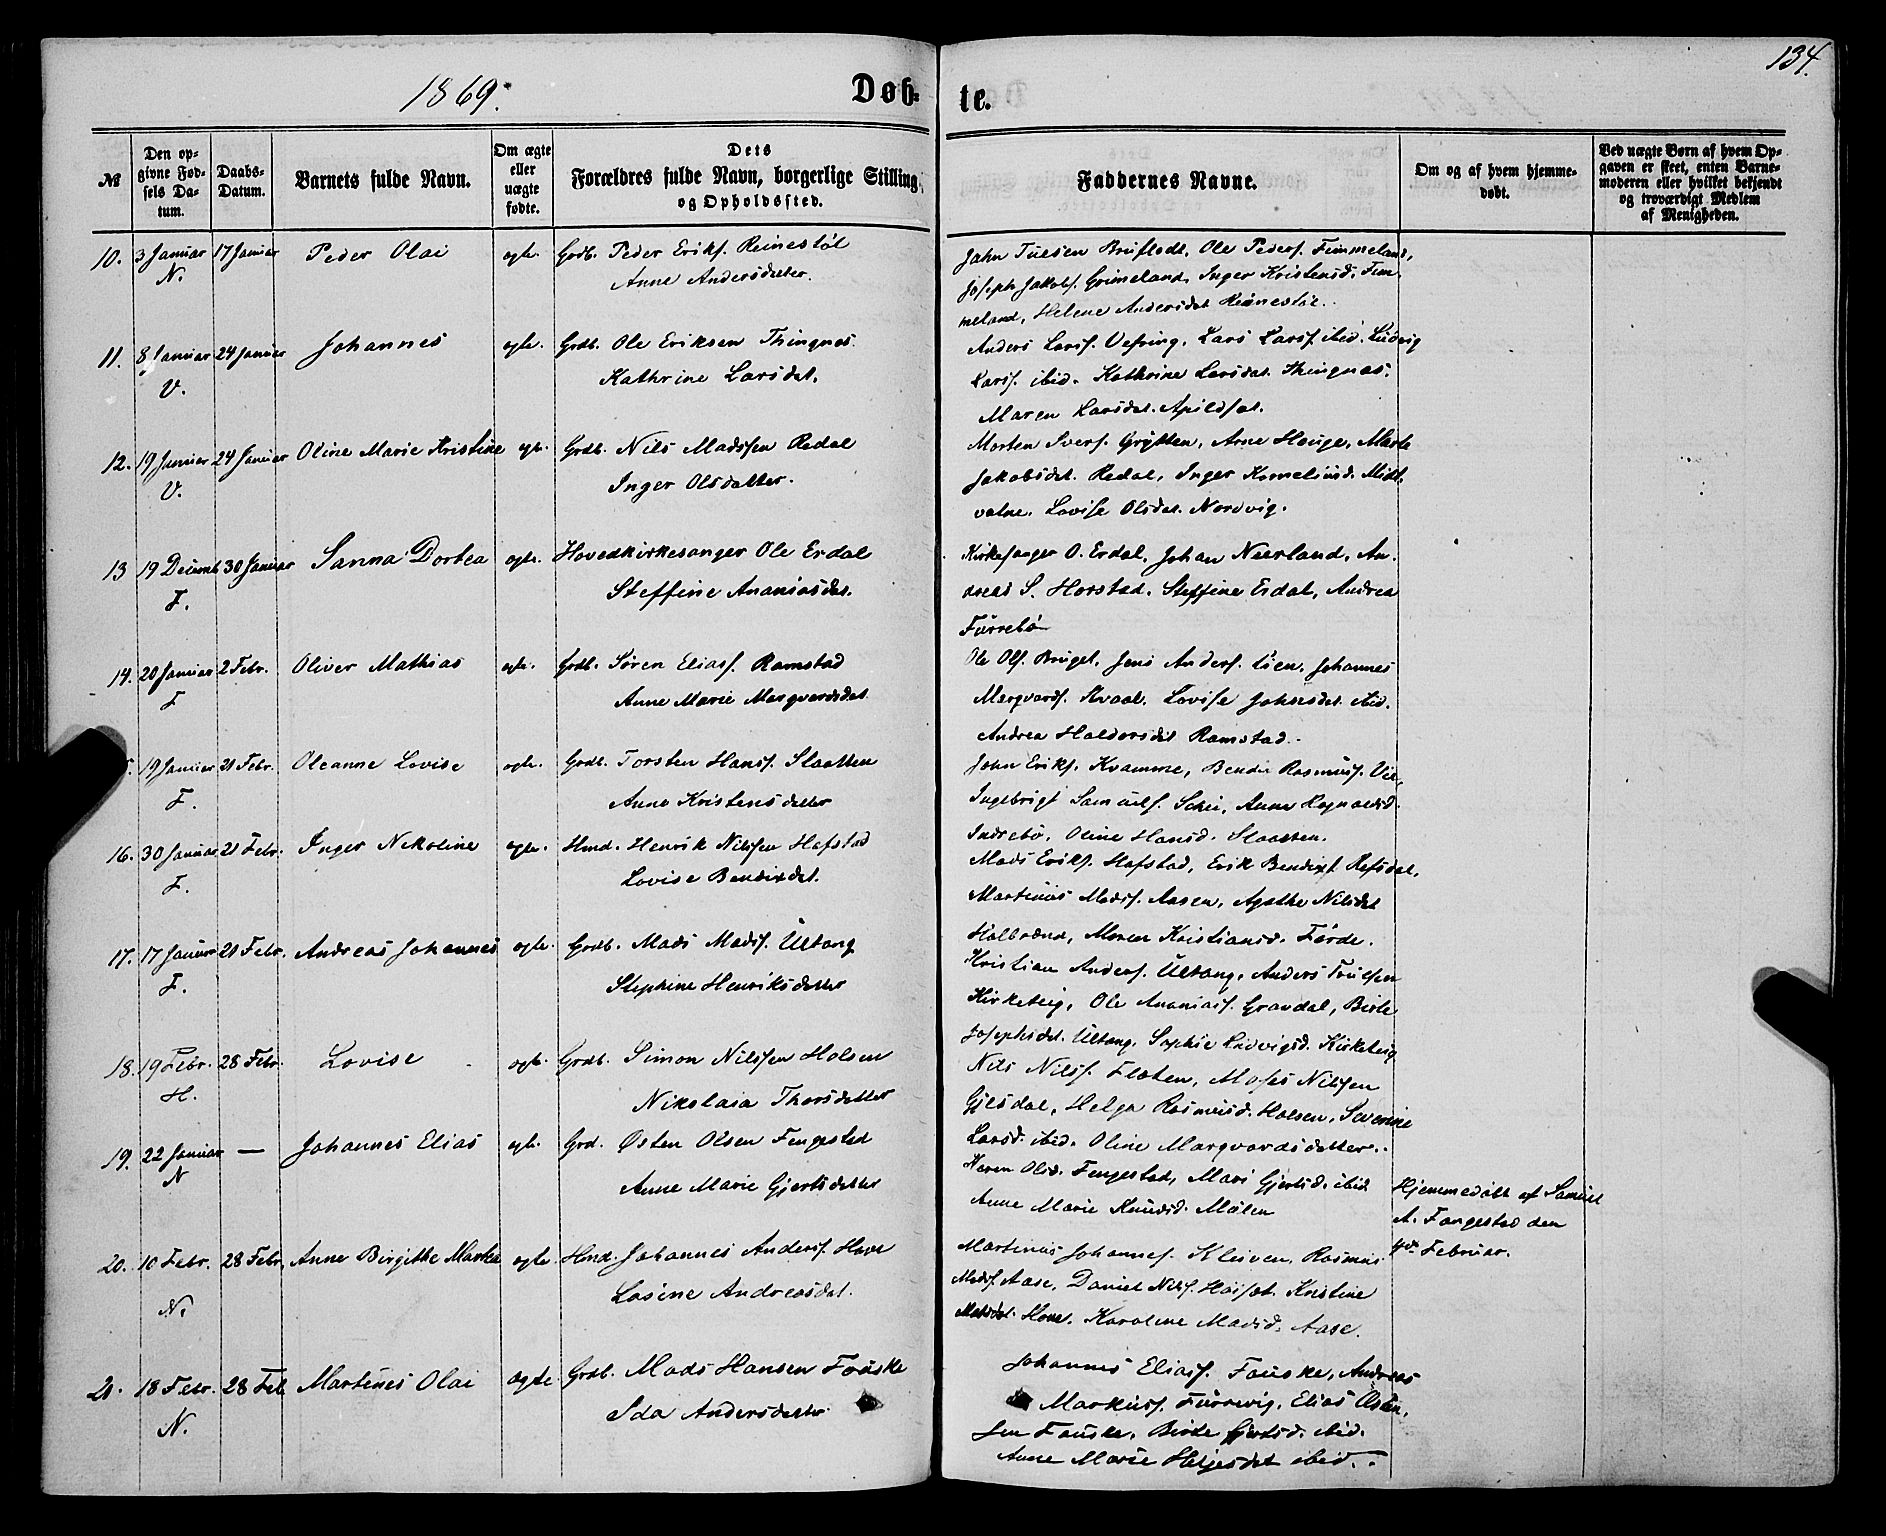 134.
1869.
Døb- te.
№
Den opgivne Fødsels Datum.
Daabs-Datum.
Barnets fulde Navn.
Om ægte eller uægte fødte.
Dets Forældres fulde Navn, borgerlige Stilling og Opholdssted.
Faddernes Navne.
Om og af hvem hjemmedøbt.
Ved uægte Børn af hvem Opgaven er skeet, enten Barnemoderen eller hvilket bekjendt og troværdigt Medlem af Menigheden.
10. 3 Januar 17 Januar Peder Olai ægte. Grdb. Peder Eriks. Reinestøl
N. Anne Andersdatter.
John Tuesen Bruflodt, Ole Peders. Fimmeland,
Joseph Jakobs. Grimeland, Inger Kristensd. Fim-
meland, Helene Andersdat Reinestøl.
11. 8 Januar 24 Januar Johannes ægte. Grdb. Ole Eriksen Thingnæs
V. Kathrine Larsdat.
Anders Lars. Vefring, Lars Lars. ibid. Ludvig
Lars. ibid. Kathrine Larsdat. Thingnæs.
Maren Larsdat. Apildsæt.
12. 19 Januar 24 Januar Oline Marie Kristine ægte. Grdb. Nils Madssen Redal
V. Inger Olsdatter.
Morten Ivers. Grytten, Arne Houge, Marte
Jakobsdat. Redal, Inger Kornelius d. Midt-
vatne. Lovise Olsdat. Nordvig.
13 19 Decemb 30 Januar Sanna Dortea ægte. Hovedkirkesanger Ole Erdal
F. Steffine Ananiasdat.
Kirkesanger O. Erdal, Johan Neerland, An-
dreas S. Horstad. Steffine Erdal, Andrea
Furrebø
14. 20 Januar 2 Febr. Oliver Mathias ægte. Grdb. Søren Elias. Ramstad
F Anne Marie Margvardsdat
Ole Ols. Bruget, Jens Anders. Lien, Johannes
Margvards. Kvaal. Lovise Johnsdat. ibid.
Andrea Haldorsdat Ramstad.
5. 19 Januar 21 Febr. Oleanne Lovise ægte. Grdb. Torsten Hans. Slaatten
F. Anne Kristensdatter
John Eriks. Kvamme, Bendix Rasmus. Vie,
Ingebrigt Samuels. Schei, Anne Ragnaldsd.
Indrebø, Oline Hansd. Slaatten.
16. 30 Januar 21 Febr. Inger Nikoline ægte. Hmd. Henrik Nilssen Hafstad
F. Lovise Bendixdat.
Mads Eriks. Hafstad, Erik Bendixs. Refsdal,
Martinus Mads. Aasen, Agathe Nilsdat
Halbrænd, Maren Kristiansd. Førde.
17. 17 Januar 21 Febr. Andreas Johannes ægte. Grdb. Mads Mads. Ultang
F. Stephine Henriksdatter
Kristian Anders. Ultang, Anders Truelsen
Kirketeig, Ole Ananias. Gravdal, Birte
Josephsdat. Ultang, Sophie Ludvigsd. Kirketeig
18. 19 Febr. 28 Febr. Lovise ægte. Grdb. Simon Nilssen Holsen
H. Nikolaia Thorsdatter
Nils Nils. Flaten, Moses Nilssen
Gjesdal, Helga Rasmusd. Holsen, Severine
Larsd. ibid. Oline Margvardsdatter.
19. 22 Januar — Johannes Elias ægte. Grd. Østen Olsen Fengestad
N Anne Marie Gjertsdatter
Karen Olsd. Fengestad, Mari Gjertsd. ibid
Anne Marie Knudsd. Målen
Hjemmedøbt af Samuel
A. Fangestad den
4de Februar.
20. 10 Febr. 28 Febr. Anne Birgithe Martea ægte. Hmd. Johannes Anders. Hove
N. Lasine Andreasdat.
Martinus Johannes. Kleiven, Rasmus
Mads. Aase, Daniel Nils. Høisæt. Kristine
Matsdat. Hove. Karoline Madsd. Aase.
21. 18 Febr. 28 Feb Martinus Olai ægte. Grdb. Mads Hansen Fauske
N. Ida Andersdatter
Johannes Elias. Fauske, Andreas
Markus. Furrevig, Elias Østen-
sen Fauske, Birte Gjertsd. ibid.
Anne Marie Helgesdat ibid.